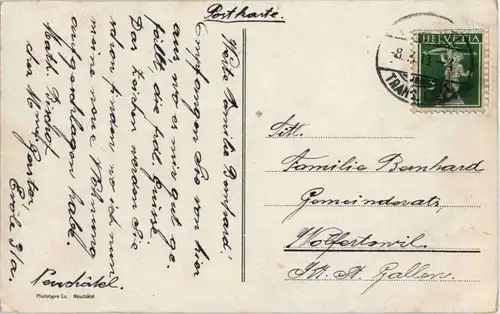 Postkarte.
HELVETIA
Werte Familie Bernhard!
Empfangen Sie von hier
aus, wo es mir gut ge-
fällt, die frdl. Grüsse.
Das Zeichen werden Sie
schon finden, wo ich nun
meine neue Wohnung
aufgeschlagen habe.
Neuchâtel.
Familie Bernhard
Gemeinderats,
Wolfertswil.
Kt. St. Gallen.
Phototypie Co. Neuchâtel